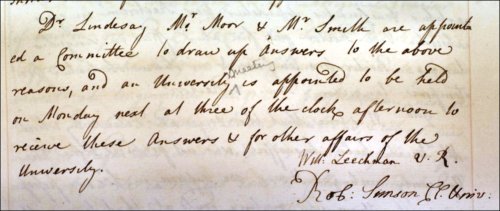 Dr Lindesay Mr Moor & Mr Smith are appoint
ed a Committee to draw up Answers to the above
reasons, and an University meeting is appointed to be held
on Monday next at three of the clock afternoon to
receive these Answers & for other affairs of the
University.
Will: Leechman V. R.
Rob: Simson Cl. Univ.